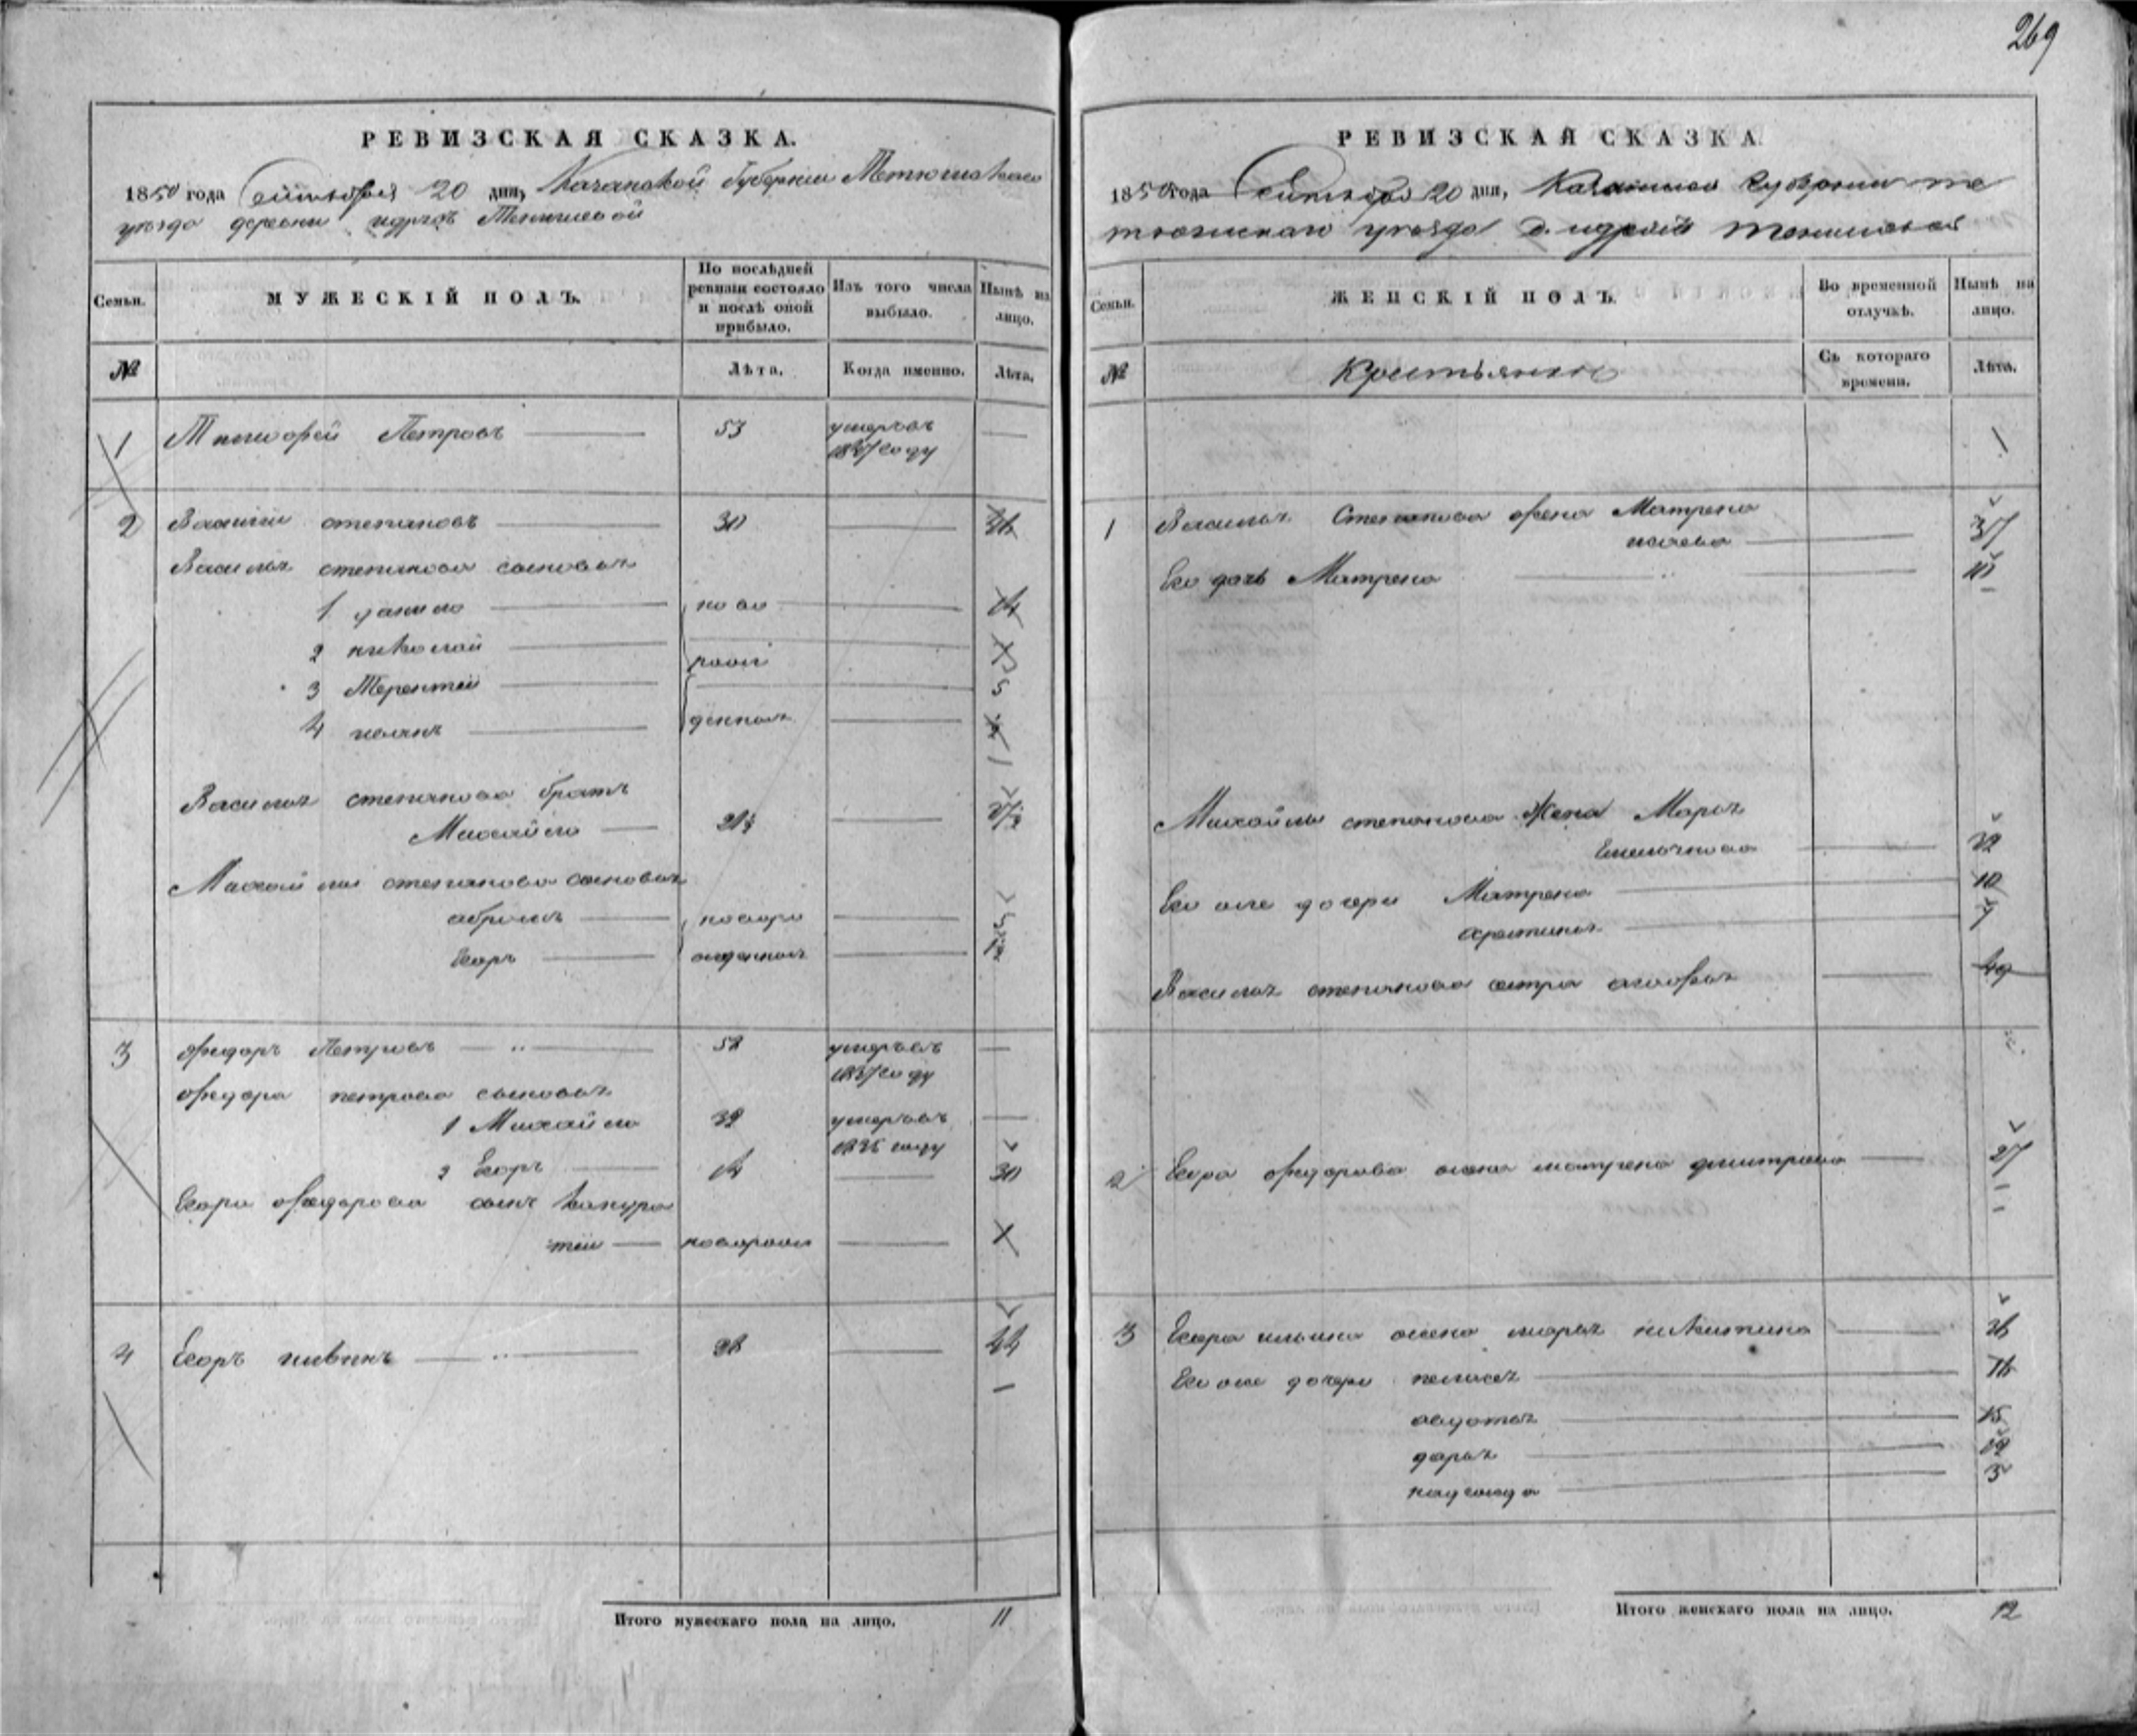 269
РЕВИЗСКАЯ СКАЗКА.
1850 года Сентября 20 дня, Казанской Губернии Тетюшскаго
уѣзда деревни Тенишевой
Семьи.
МУЖЕСКІЙ ПОЛЪ.
По послѣдней ревизіи состояло и послѣ оной прибыло.
Изъ того числа выбыло.
Нынѣ на лицо.
№
Лѣта.
Когда именно.
Лѣта.
1 Тимофей Петровъ 53 умеръ въ
1847 году
2 Василий степановъ 30 36
Василья степанова сыновья
1 данило ново 14
2 николай
рож
3 Терентей 5
4 иванъ денныя 1
Василья степанова братъ
Михайло 21½
Михайлы степанова сыновья
абрамъ новоро
Егоръ жденныя
3 федоръ Петровъ 52 умеръ въ
1847 году
федора петрова сыновья
1 Михайло 32 умеръ въ
году
2 Егоръ 14 30
Егора федорова сынъ
тей новорож
4 Егоръ 28 44
1
Итого мужескаго пола на лицо. 11
РЕВИЗСКАЯ СКАЗКА
1850 года Сентября 20 дня, Казанской Губернии Те
тюшскаго уезда д. Тенишевой
Семьи.
ЖЕНСКІЙ ПОЛЪ.
Во временной отлучкѣ.
Нынѣ на лицо.
№
Крестьянки
Съ котораго времени.
Лѣта.
1 Василья Степанова жена Матрена
37
Его дочь Матрена 10
Михайлы степанова Жена Марья
Емельянова 32
Его же дочери Матрена 10
христинья 7
Василья степанова сестра 49
2 Егора федорова жена матрена дмитриева 27
3 Егора ильина жена марья никитина 36
Его же дочери пелагея 16
авдотья 15
дарья 12
надежда 5
Итого женскаго пола на лицо. 12